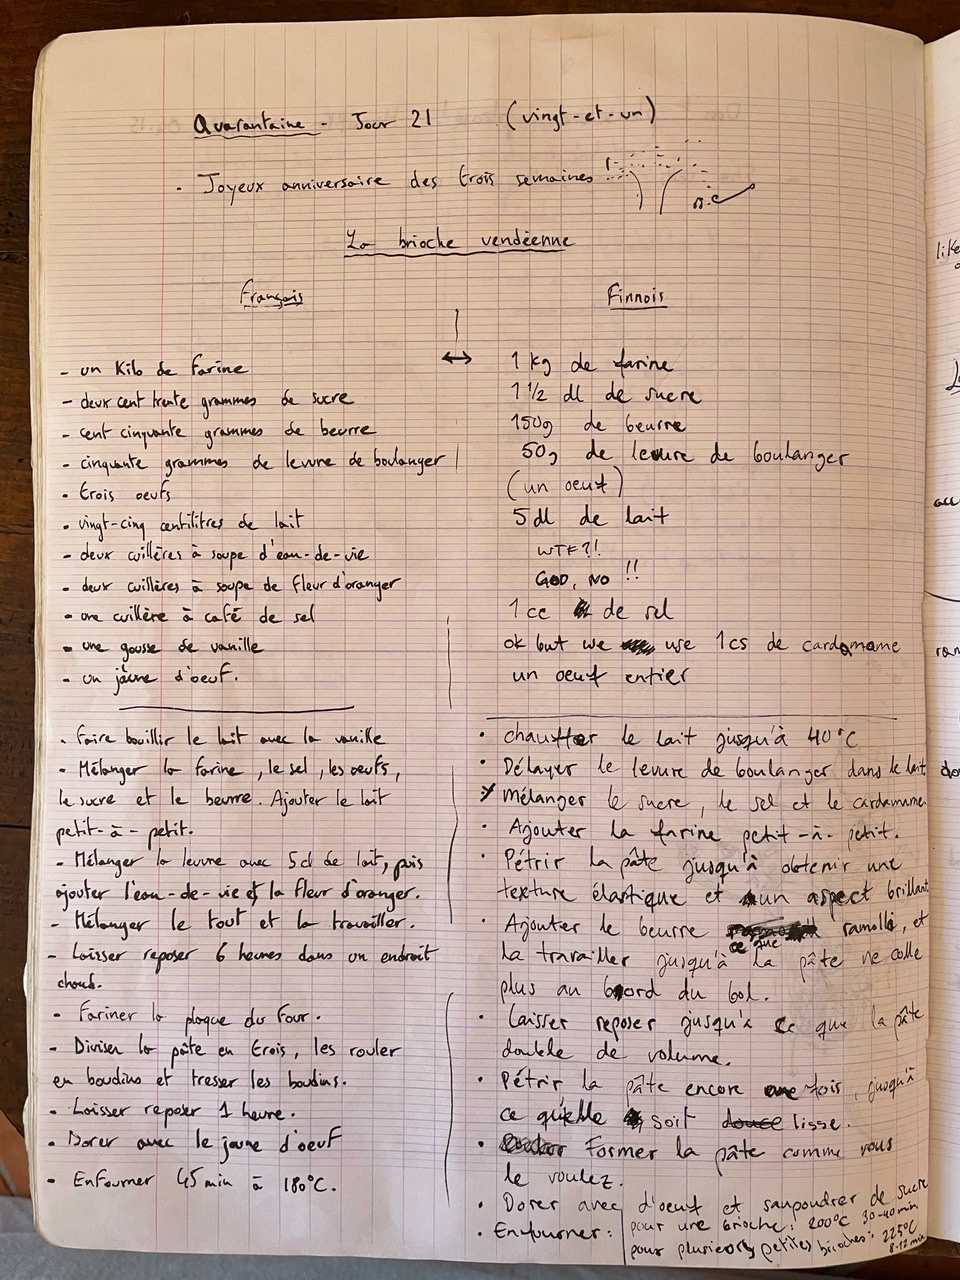 Quarantaine - Jour 21 (vingt-et-un)
- Joyeux anniversaire des trois semaines
La brioche vendéenne
Français
- un kilo de farine
- deux cent trente grammes de sucre
- cent cinquante grammes de beurre
- cinquante grammes de levure de boulanger
- trois oeufs
- vingt-cinq centilitres de lait
- deux cuillères à soupe d'eau-de-vie
- deux cuillères à soupe de fleur d'oranger
- une cuillère à café de sel
- une gousse de vanille
- un jaune d'oeuf.
- Faire bouillir le lait avec la vanille
- Mélanger la farine, le sel, les oeufs,
le sucre et le beurre. Ajouter le lait
petit-à-petit.
- Mélanger la levure avec 5cl de lait, puis
ajouter l'eau-de-vie et la fleur d'oranger.
- Mélanger le tout et la travailler.
- Laisser reposer 6 heures dans un endroit
chaud.
- Fariner la plaque du four.
- Diviser la pâte en trois, les rouler
en boudins et tresser les boudins.
- Laisser reposer 1 heure.
- Dorer avec le jaune d'oeuf
- Enfourner 45 min à 180°C.
Finnois
↔ 1 kg de farine
1 1/2 dl de sucre
150g de beurre
50g de levure de boulanger
(un oeuf)
5 dl de lait
WTF?!
GOD, NO !!
1 cc de sel
ok but we use 1cs de cardamome
un oeuf entier
• chauffer le lait jusqu'à 40°C
• Délayer le levure de boulanger dans le lait
• Mélanger le sucre, le sel et le cardamame
• Ajouter la farine petit-à-petit.
• Pétrir la pâte jusqu'à obtenir une
texture élastique et un aspect brillant
• Ajouter le beurre ramolli, et
la travailler jusqu'à ce que la pâte ne colle
plus au bord du bol.
• Laisser reposer jusqu'à ce que la pâte
double de volume.
• Pétrir la pâte encore une fois, jusqu'à
ce qu'elle soit douce lisse.
• Former la pâte comme vous
le voulez.
• Dorer avec d'oeuf et saupoudrer de sucre
• Enfourner: pour une brioche: 200°C 30-40 min
pour plusieurs petites brioches: 225°C
8-12 min
like